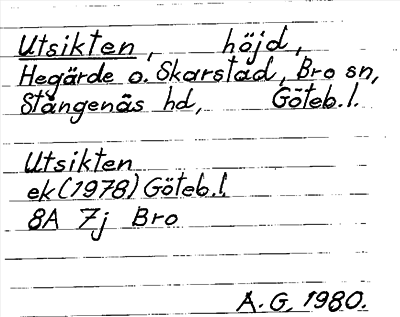 Utsikten, höjd,
Hegärde o. Skarstad, Bro sn,
Stångenäs hd, Göteb.l.
Utsikten
ek (1978) Göteb.l.
8A 7j Bro
A.G. 1980.